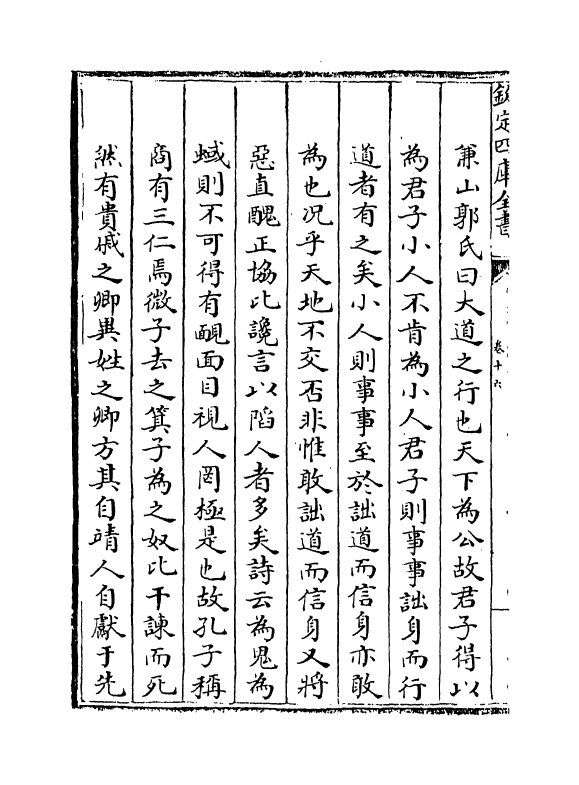 欽定四庫全書
卷十六
兼山郭氏曰大道之行也天下為公故君子得以
為君子小人不肯為小人君子則事事詘身而行
道者有之矣小人則事事至於詘道而信身亦敢
為也况乎天地不交否非惟敢詘道而信身又將
惡直醜正協比讒言以陷人者多矣詩云為鬼為
蜮則不可得有靦面目視人罔極是也故孔子稱
商有三仁焉微子去之箕子為之奴比干諫而死
然有貴戚之卿異姓之卿方其自靖人自獻于先